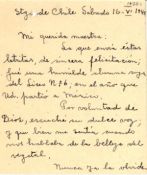 Stgo de Chile. Sábado 16-V-194
Mi querida maestra:
La que envía estas
letritas, de sincera felicitación,
fué una humilde alumna suya
del Liceo N° 6, en el año que
Ud. partió a México.
Por voluntad de
Dios, escuché su dulce voz,
y que bien me sentía cuando
nos hablaba de la belleza del
vegetal.
Nunca ya la olvidé